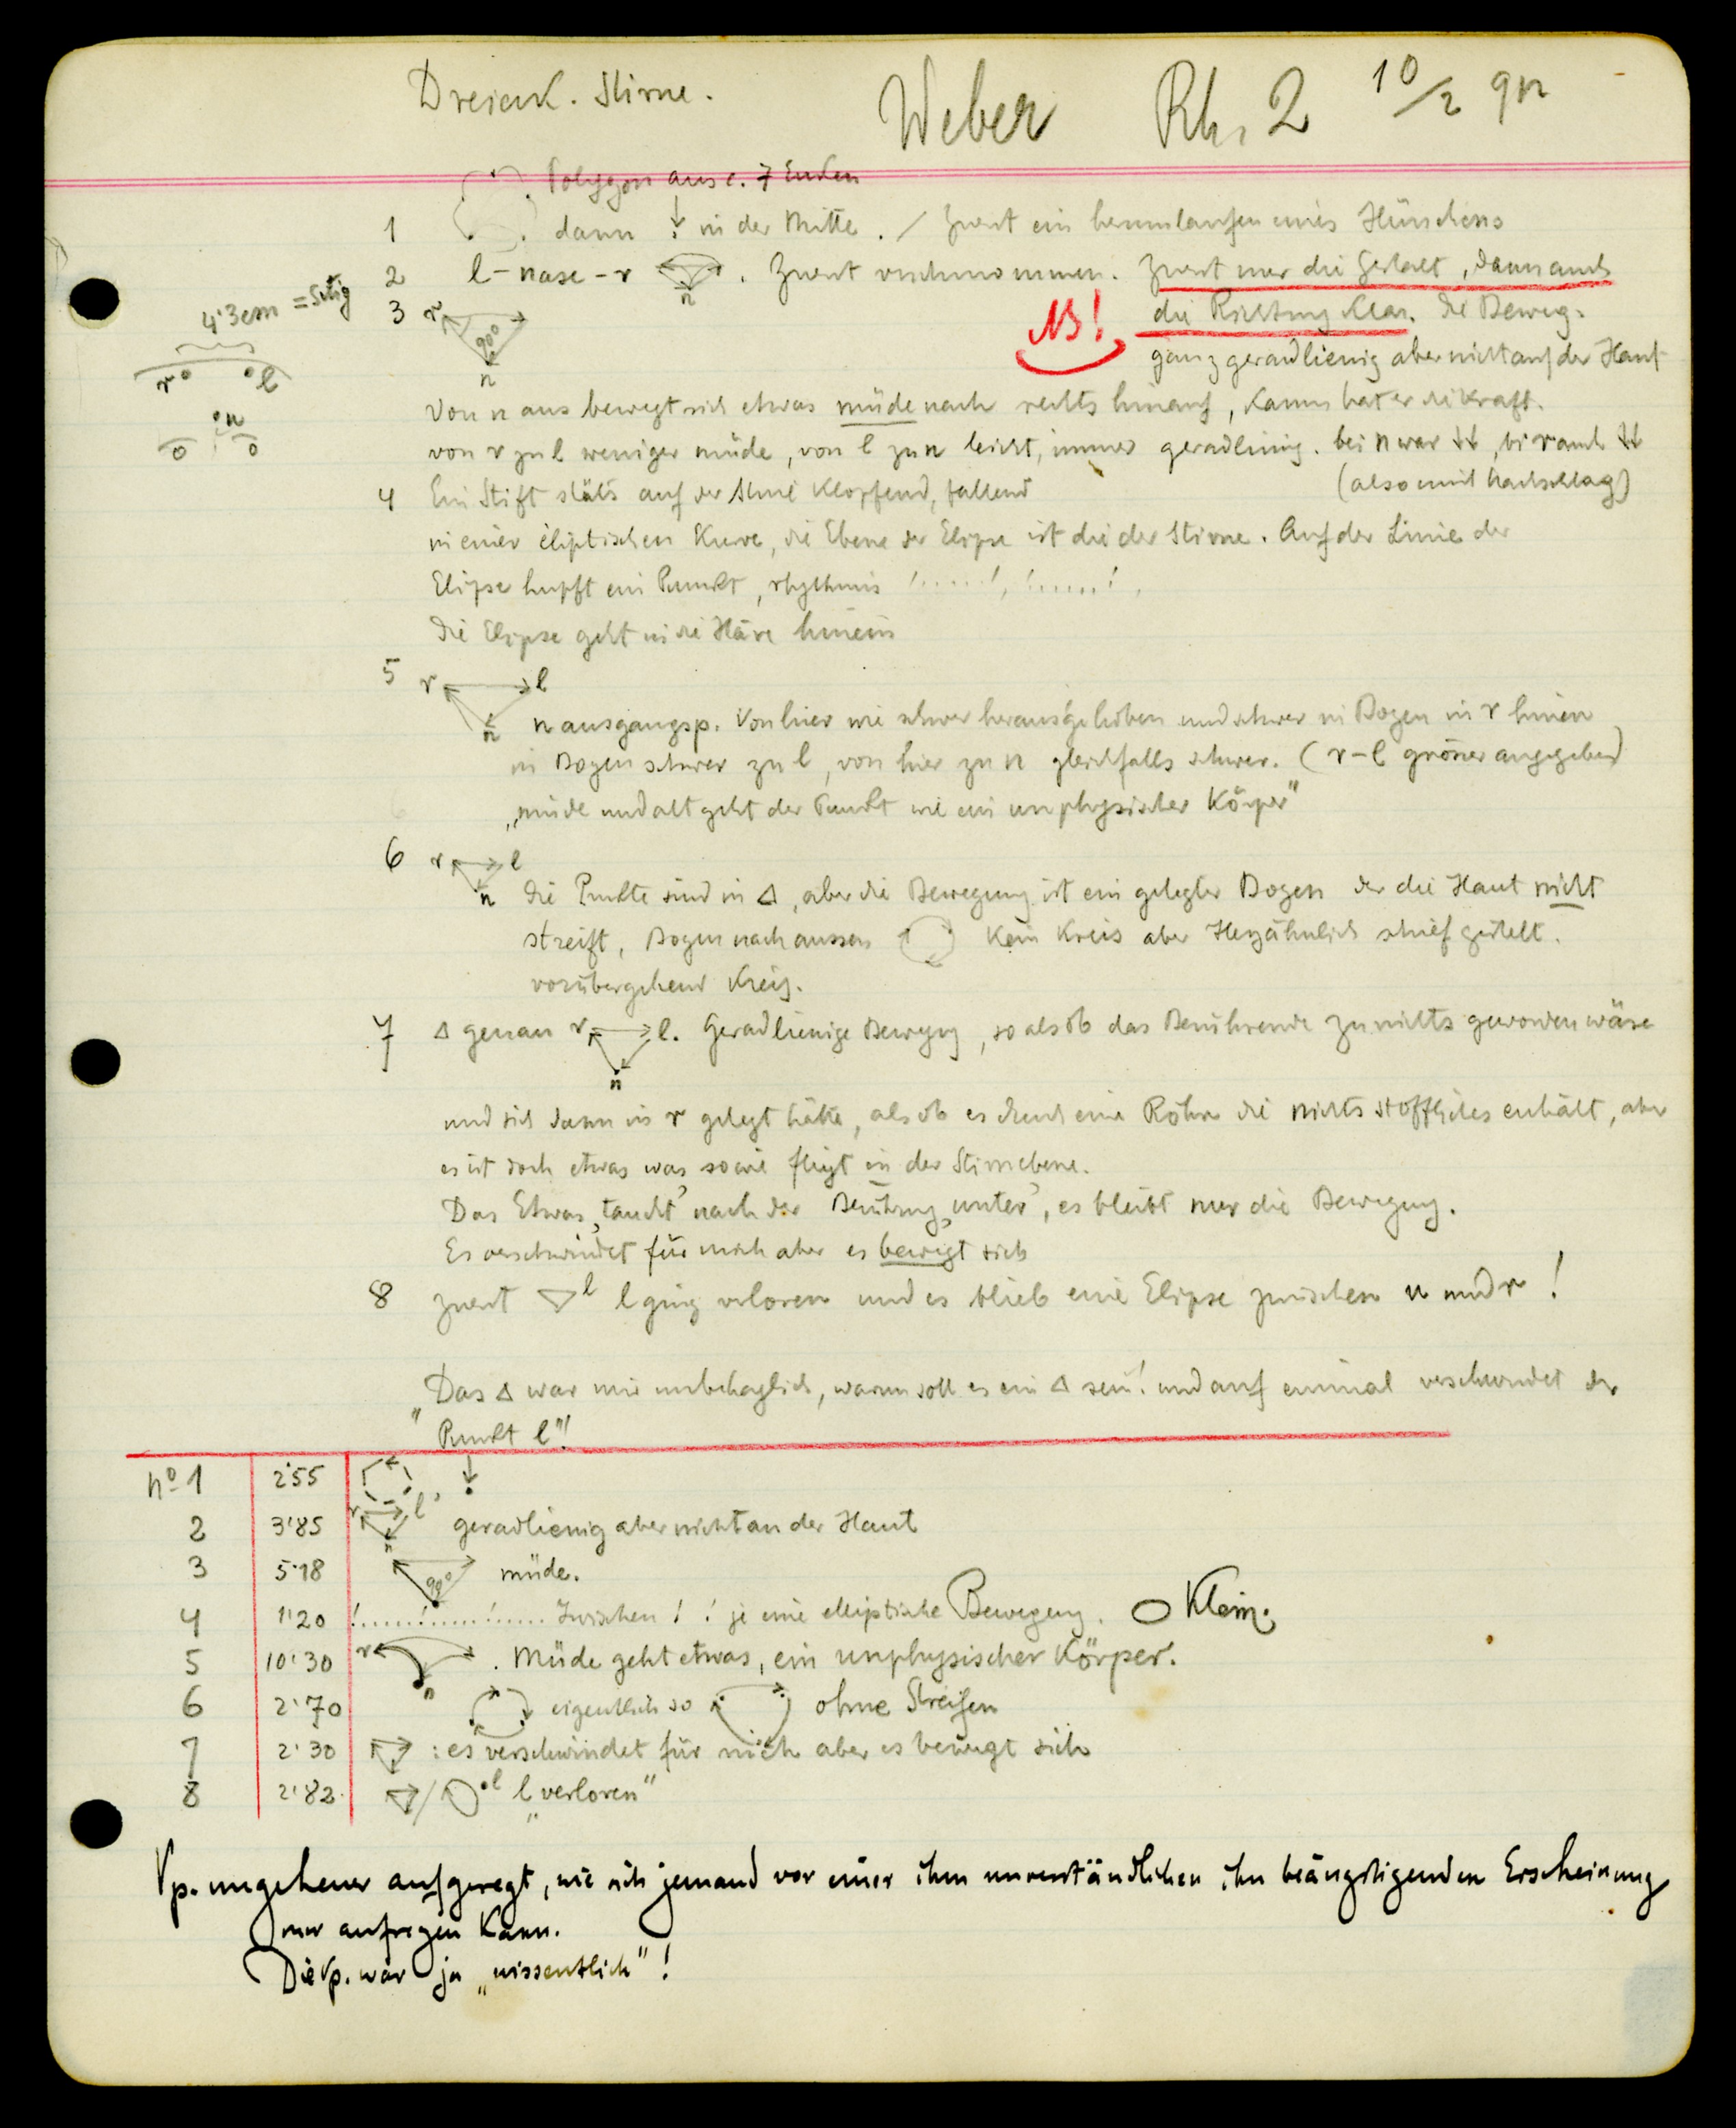 Dreieck. Stirne.
Weber Rh. 2 10/2 9n
Polygon aus c. 7 Enden
1 dann ↓ in der Mitte. / Zuerst ein herumlaufen eines
2 l - nase - r n. Zuerst verschwommen. Zuerst nur die Gestalt, dann auch
4'3cm = Seitig
3 r 90° n NB! die Richtung klar. die Beweg.
r l
ganz geradlienig aber nicht auf der Haut
n
von n aus bewegt sich etwas müde nach rechts hinauf, kaum hat er die kraft.
von r zu l weniger müde, von l zu n leicht, immer geradlinig. bei n war ↓↓, bei r auch ↓↓
(also mit Nachschlag)
4 Ein Stift stäts auf der Stirne klopfend, fallend
in einer eliptischen Kurve, die Ebene der Elipse ist die der Stirne. Auf der Linie der
Elipse hupft ein Punkt, rhythmus !.....!, !......!,
die Elipse geht in die Häre hinein
5 r l
n n ausgangsp. Von hier wie schwer herausgehoben und schwer in Bogen in r hinein
in Bogen schwer zu l, von hier zu n gleichfalls schwer. (r-l grösser angegeben)
„müde und alt geht der Punkt wie ein unphysischer Körper"
6 r l
n die Punkte sind in Δ, aber die Bewegung ist ein gelegter Bogen der die Haut nicht
streift, Bogen nach aussen kein Kreis aber Herzähnlich schief gestellt.
vorübergehend Kreis.
7 Δ genau r l. Geradlienige Bewegung, so als ob das Berührende zu nichts geworden wäre
n
und sich dann in r gelegt hätte, als ob es durch eine Röhre die nichts stoffliches enhält, aber
es ist doch etwas was sowie fliegt in der Stirnebene.
Das Etwas „taucht" nach der Berührung „unter", es bleibt nur die Bewegung.
Es verschwindet für mich aber es bewegt sich
8 zuerst l l ging verloren und es blieb eine Elipse zwischen n und r!
„Das Δ war mir unbehaglich, warum soll es ein Δ sein! und auf einmal verschwindet der
Punkt l"!
No 1 2'55
2 3'85 r l n geradlienig aber nicht an der Haut
3 5'18 90° müde.
4 1'20 !.....!.....!..... Zwischen ! ! je eine elliptische Bewegung. Klein.
5 10'30 r n . Müde geht etwas, ein unphysischer Körper.
6 2'70 eigentlich so ohne Streifen
7 2'30 : es verschwindet für mich aber es bewegt sich
8 2'82 / l „l verloren"
Vp. ungeheuer aufgeregt, wie sich jemand vor einer ihm unverständlichen ihn beängstigenden Erscheinung
nur aufregen kann.
Die Vp. war ja „wissentlich"!